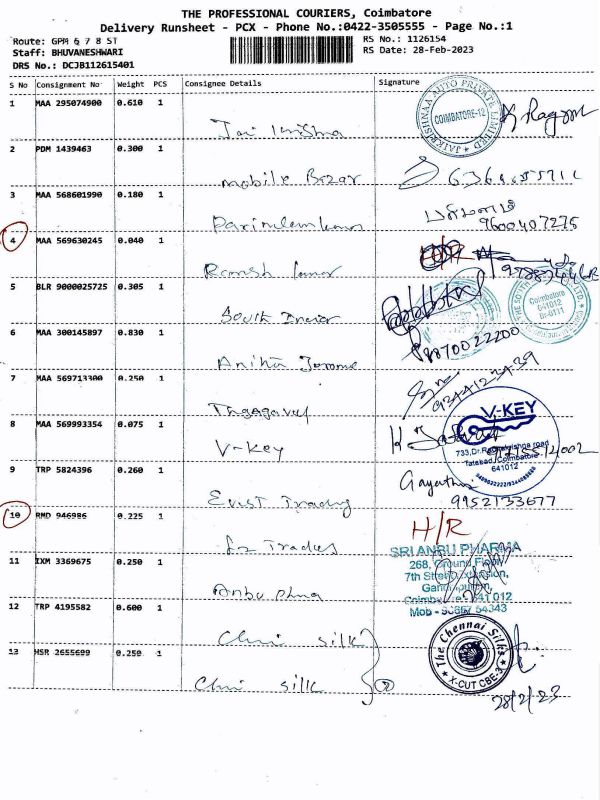 THE PROFESSIONAL COURIERS, Coimbatore
Delivery Runsheet - PCX - Phone No.:0422-3505555 - Page No.:1
Route: GPM 6 7 8 ST
RS No.: 1126154
Staff: BHUVANESHWARI
RS Date: 28-Feb-2023
DRS No.: DCJB112615401
S No Consignment No Weight PCS Consignee Details Signature
1 MAA 295074900 0.610 1
JAIKRISHNAA AUTO PRIVATE LIMITED
COIMBATORE-12
K Ragom
Jai Krishna
2 PDM 1439463 0.300 1
Mobile Bazar
3 MAA 568601990 0.180 1
9600407275
4 MAA 569630245 0.040 1
H/R
Ramesh Kumar
5 BLR 9000025725 0.305 1
Coimbatore
641012
South Indian
6 MAA 300145897 0.830 1
9870022200
Anitha Jerome
7 MAA 569713300 0.250 1
Thyagavel
8 MAA 569993354 0.075 1
V-KEY
733, Dr.Radhakrishna road
Tatabad, Coimbatore
641012
V-Key
9 TRP 5824396 0.260 1
Gayathri
9952133677
Evist Trading
10 RMD 946986 0.225 1
H/R
Traders
SRI ANBU PHARMA
268, Ground Floor,
7th Street Extension,
Gandhipuram,
Coimbatore - 641 012
Mob - 98657 54343
11 IXM 3369675 0.250 1
Anbu phma
12 TRP 4195582 0.600 1
Chni silk
The Chennai Silks
X-CUT CBE-3
13 HSR 2655699 0.250 1
Chni silk
2
28/2/23